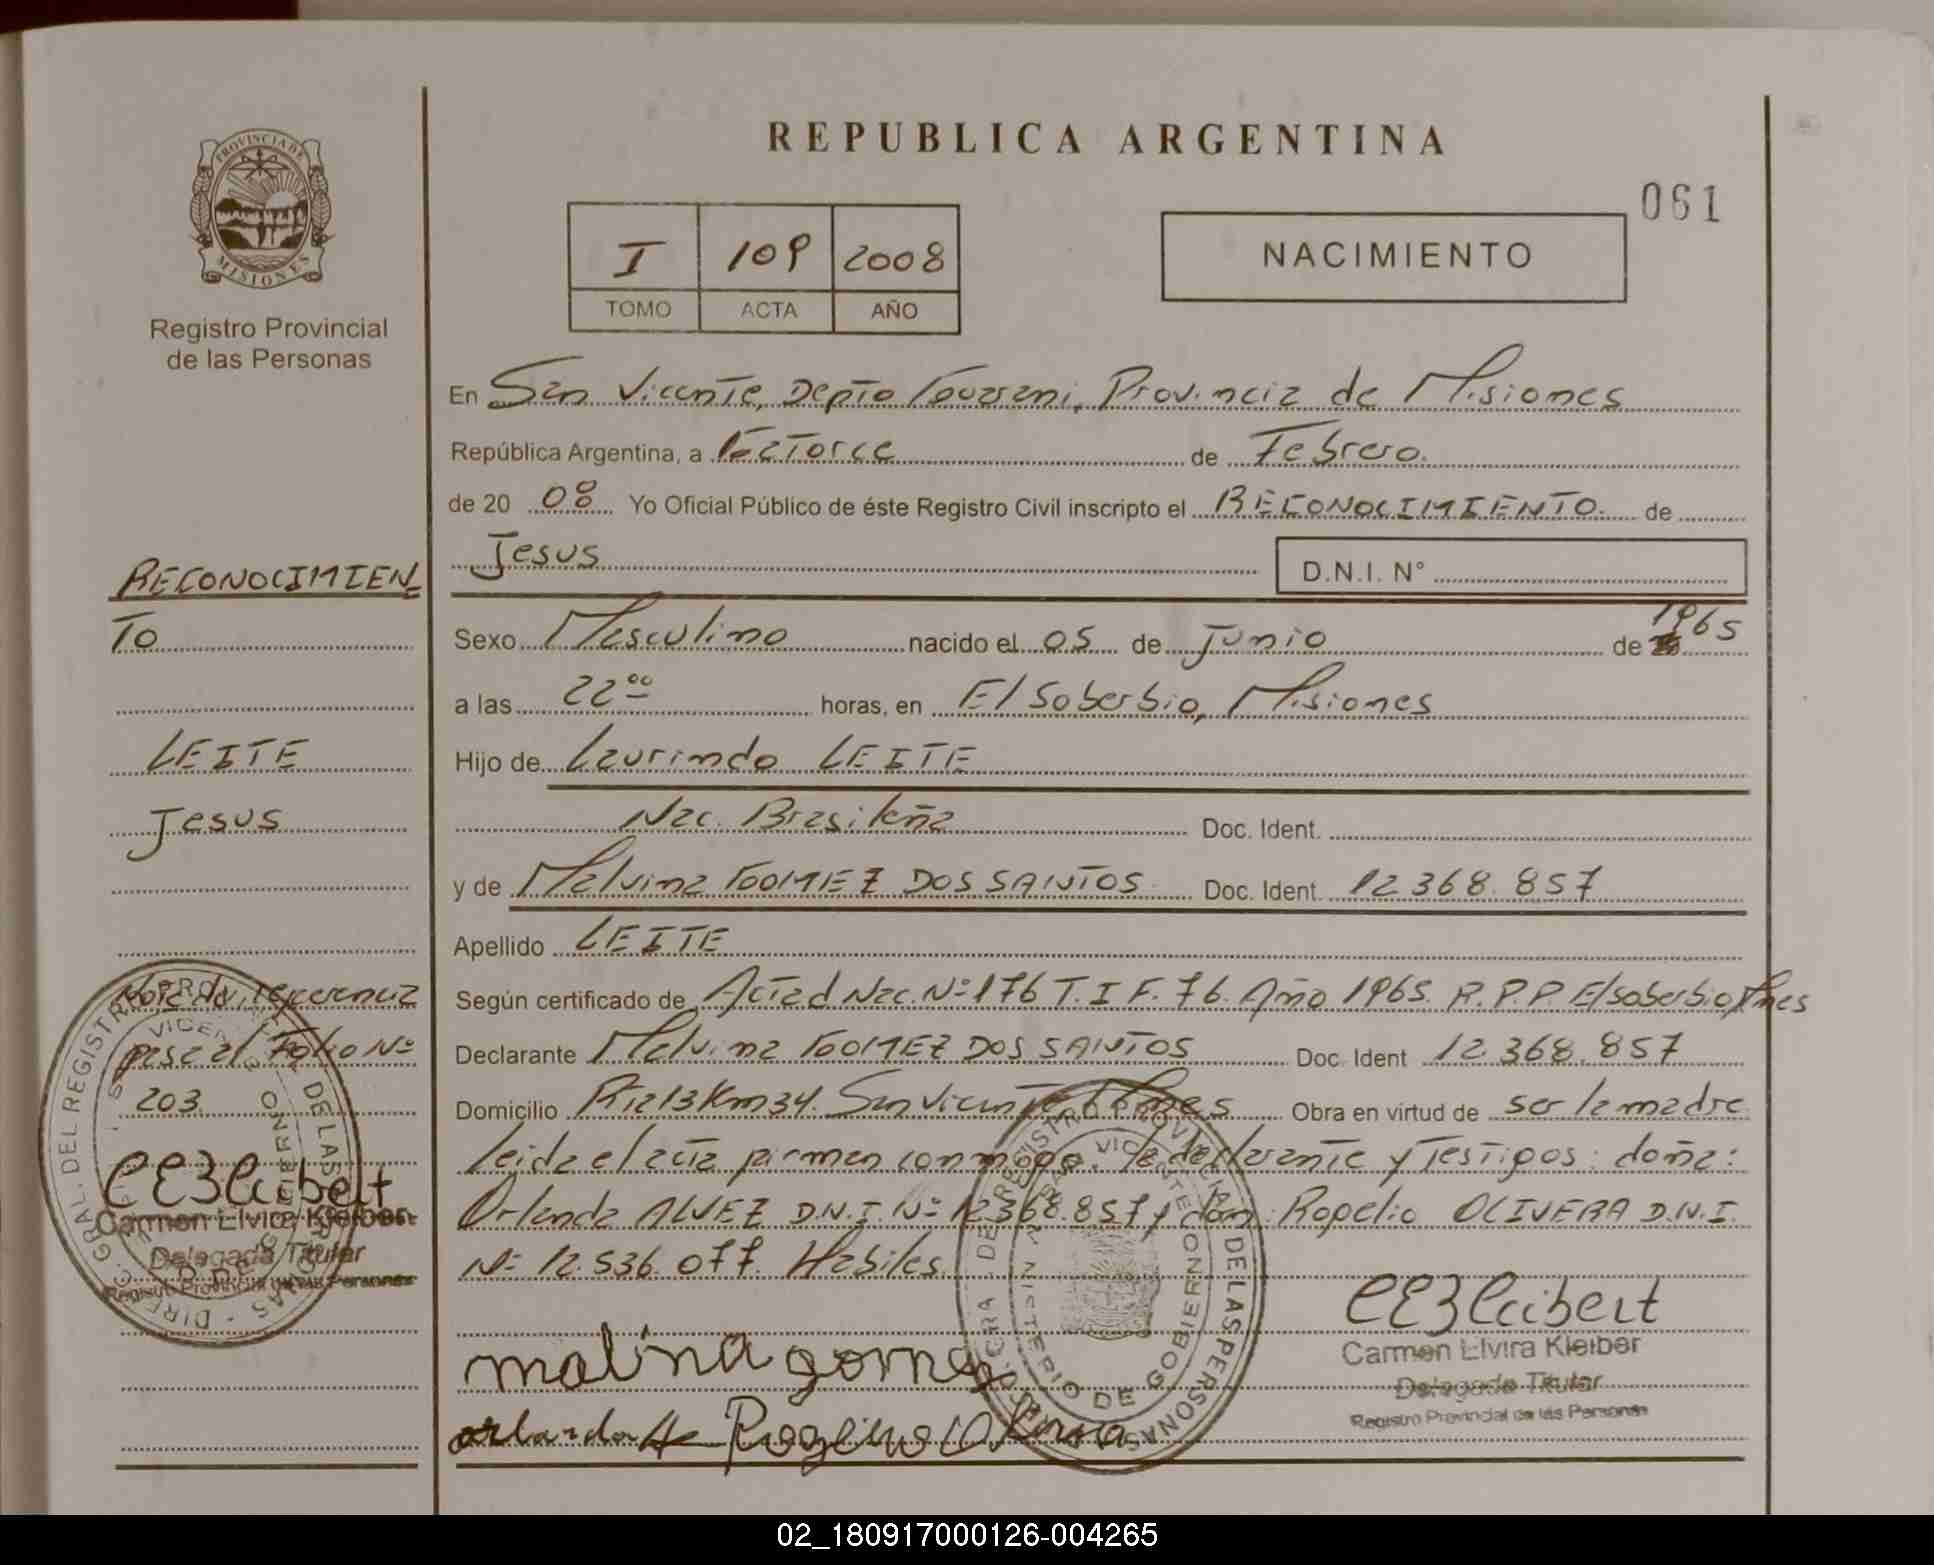 REPUBLICA ARGENTINA
061
PROVINCIA DE
MISIONES
Registro Provincial
de las Personas
I 109 2008
TOMO ACTA AÑO
NACIMIENTO
En San Vicente, Depto Guarani, Provincia de Misiones
República Argentina, a Catorce de Febrero.
de 20 08 Yo Oficial Público de éste Registro Civil inscripto el RECONOCIMIENTO. de
Jesus D.N.I. N°
Sexo Masculino nacido el 05 de Junio de 1965
a las 22 00 horas, en El Soberbio, Misiones
Hijo de Laurindo LEITE
Nac. Brasileña Doc. Ident.
y de Malvina GOMEZ DOS SANTOS Doc. Ident. 12 368.857
Apellido LEITE
Según certificado de Acta d Nac. Nº 176 T. I F. 76. Año 1965. R.P.P. El soberbio Mnes
Declarante Malvina GOMEZ DOS SANTOS Doc. Ident 12.368.857
Domicilio Rta 13 Km 34. San Vicente Mnes Obra en virtud de ser la madre
Leida el acta firman conmigo, la declarante y Testigos: doña:
Orlanda ALVEZ D.N.I. Nº 12368.857 y don: Rogelio OLIVERA D.N.I.
Nº 12.536.077. Habiles.
malvina gomez
Carmen Elvira Kleiber
Delegada Titular
Registro Provincial de las Personas
RECONOCIMIEN
TO
LEITE
Jesus
Nota de referencia
pasa al Folio Nº
203
Carmen Elvira Kleiber
Delegada Titular
Registro Provincial de las Personas
02_180917000126-004265